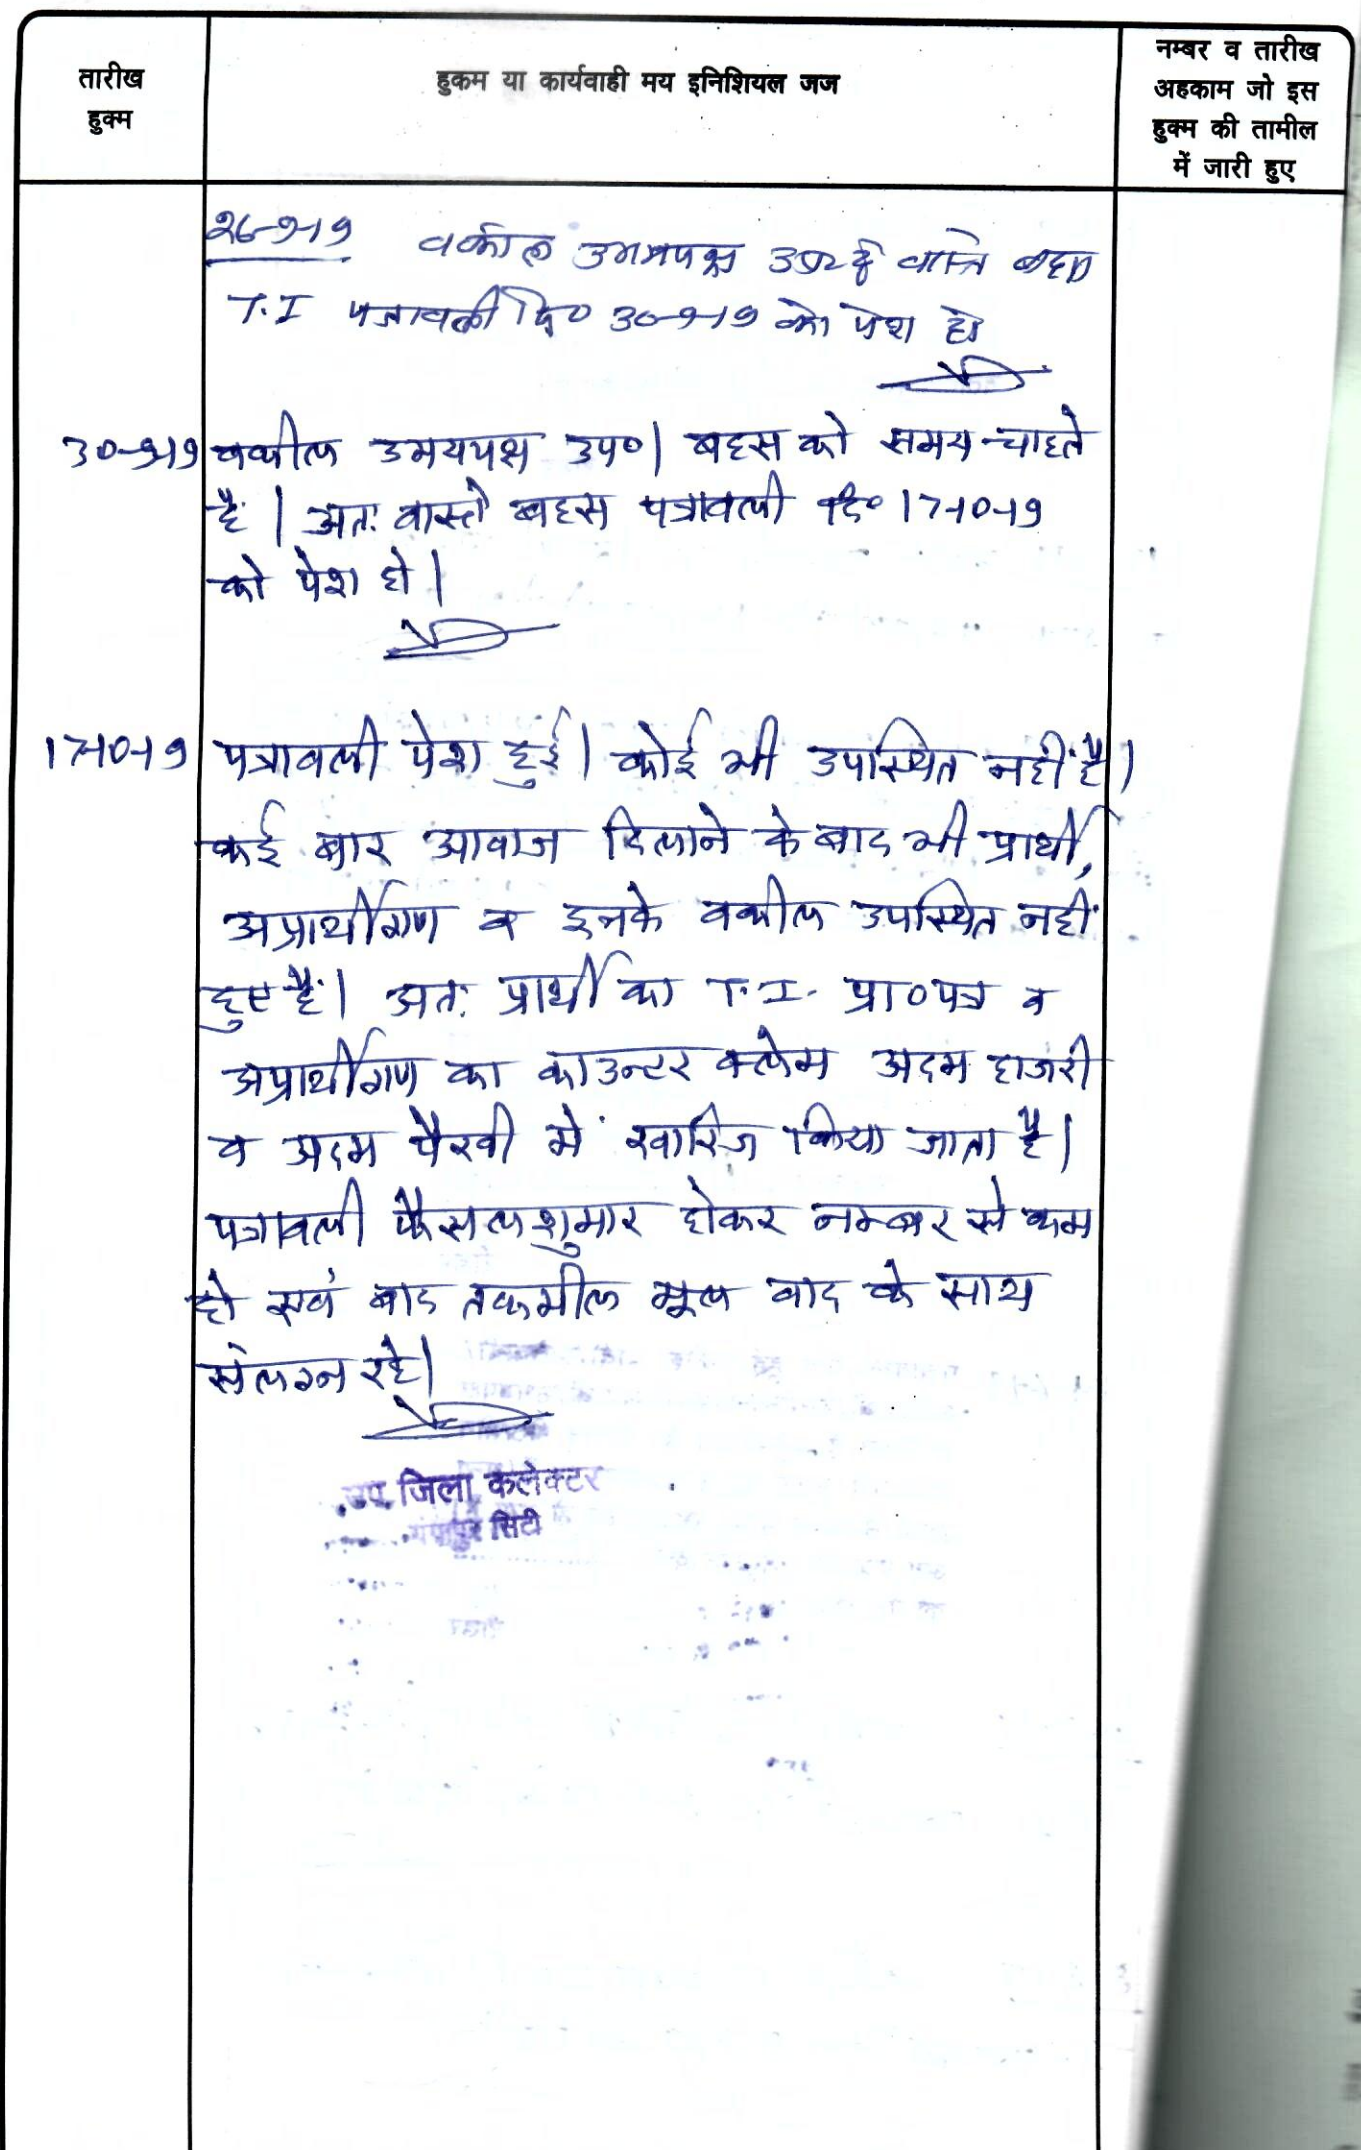 तारीख
हुक्म
हुकम या कार्यवाही मय इनिशियल जज
नम्बर व तारीख
अहकाम जो इस
हुक्म की तामील
में जारी हुए
26-9-19 वकील उभयपक्ष उप० वास्ते बहस
T.I पत्रावली दि० 30-9-19 को पेश हो
30-9-19 वकील उभयपक्ष उप० | बहस को समय चाहते
है | अतः वास्ते बहस पत्रावली दि० 17-10-19
को पेश हो |
17-10-19 पत्रावली पेश हुई | कोई भी उपस्थित नहीं है |
कई बार आवाज दिलाने के बाद भी प्रार्थी,
अप्रार्थीगण व इनके वकील उपस्थित नहीं
हुए हैं | अतः प्रार्थी का T.I. प्रा०पत्र व
अप्रार्थीगण का काउन्टर क्लेम अदम हाजरी
व अदम पैरवी में खारिज किया जाता है |
पत्रावली फैसलशुमार होकर नम्बर से कम
हो एवं बाद तकमील मूल वाद के साथ
संलग्न रहे |
उप जिला कलेक्टर
गंगापुर सिटी